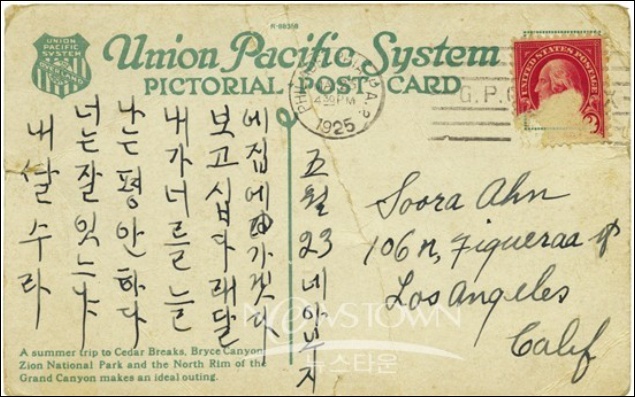 R-69358
UNION
PACIFIC
SYSTEM
OVERLAND
Union Pacific System
PICTORIAL POST CARD
UNITED STATES POSTAGE
PHILADELPHIA, P.A.
430 PM
1925
내 달 수라
너는 잘 잇느냐
나는 평안하다
내가 너를 늘
보고 십다 래달
에 집에 가겟다
五월 23 네 아부지
Soora Ahn
106 n, Figueraa st
Los Angeles
Calif
A summer trip to Cedar Breaks, Bryce Canyon,
Zion National Park and the North Rim of the
Grand Canyon makes an ideal outing.
NEWSTOWN
뉴스타운